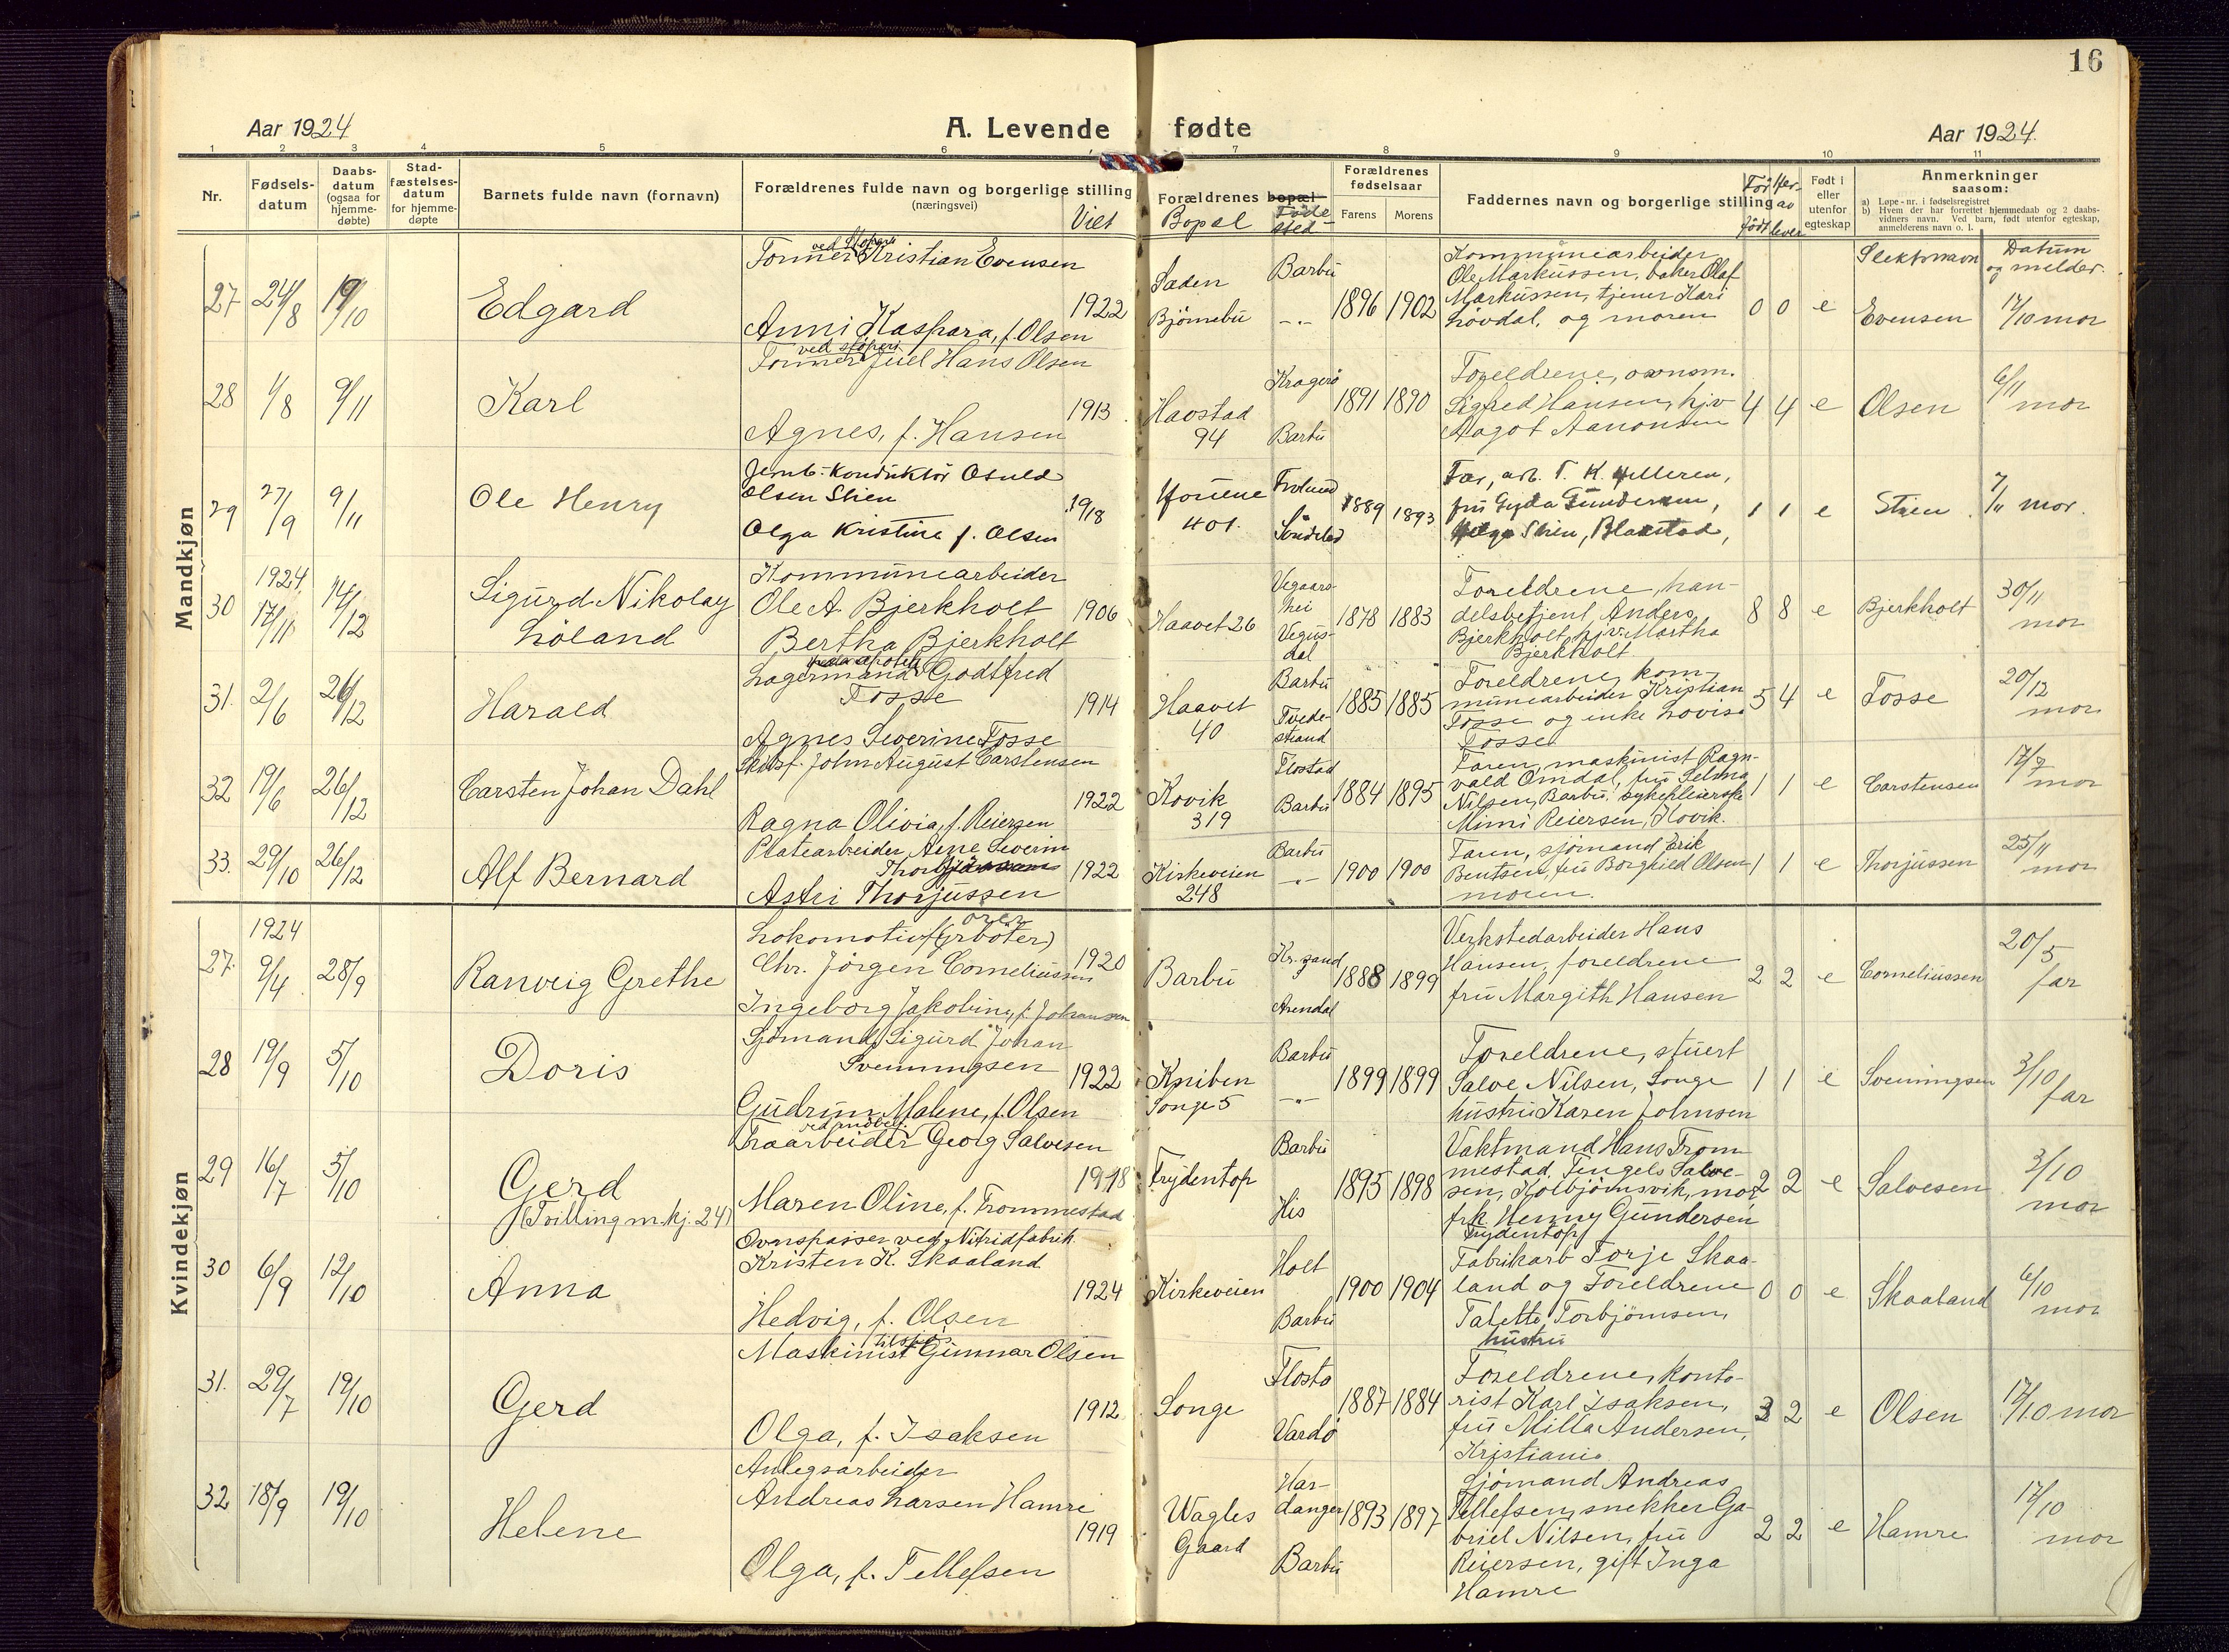 16
Aar 1924
A. Levende fødte
Aar 1924.
1 2 3 4 5 6 7 8 9 10 11
Nr.
Fødsels-
datum
Daabs-
datum
(ogsaa for
hjemme-
døbte)
Stad-
fæstelses-
datum
for hjemme-
døpte
Barnets fulde navn (fornavn)
Forældrenes fulde navn og borgerlige stilling
(næringsvei)
Viet
Forældrenes bopæl
Bopæl
Føde-
sted
Forældrenes
fødselsaar
Farens Morens
Faddernes navn og borgerlige stilling
Før
født
Her-
av
lever
Født i
eller
utenfor
egteskap
Anmerkninger
saasom:
a) Løpe-nr. i fødselsregistret
b) Hvem der har forrettet hjemmedaab og 2 daabs-
vidners navn. Ved barn, født utenfor egteskap,
anmelderens navn o. l.
Slektsnavn
Datum
og melder.
Mandkjøn
27 24/8 19/10 Edgard
ved Støperi
Former Kristian Evensen
Anni Kaspara, f. Olsen
1922
Saden
Bjørnebu
Barbu
-"-
1896 1902
Kommunearbeider
Ole Markussen, baker Olaf
Markussen, tjener Kari
Løvdal, og moren
0 0 e Evensen 17/10 mor
28 1/8 9/11 Karl
ved støperi
Former Juel Hans Olsen
Agnes, f. Hansen
1913
Haostad
94
Kragerø
Barbu
1891 1890
Foreldrene, ovnsm.
Sigfred Hansen, hjv
Aagot Aanonsen
4 4 e Olsen 6/11 mor
29 27/9 9/11 Ole Henry
Jernb.-konduktør Osuld
Olsen Stien
Olga Kristine f. Olsen
1918
401.
Frolund
Søndeled
1889 1893
Far, arb. T. K. Helleren,
fru Gyda Gundersen,
Helga Stien, Blakstad,
1 1 e Stien 7/11 mor.
30 1924 17/11 14/12 Sigurd Nikolay
Løland
Kommunearbeider
Ole A Bjerkholt
Bertha Bjerkholt
1906
Haavet 26
Vegaars-
hei
Vegus-
dal
1878 1883
Foreldrene, han-
delsbetjent Anders
Bjerkholt, hjv. Martha
Bjerkholt
8 8 e Bjerkholt 30/11 mor
31. 2/6 26/12 Harald
Lagermand Godtfred
Fosse
Agnes Severine Fosse
1914
Haavet
40
Barbu
Tvede-
strand
1885 1885
Foreldrene, kom-
munearbeider Kristian
Fosse og enke Lovise
Fosse
5 4 e Fosse 20/12 mor
32 19/6 26/12 Carsten Johan Dahl
Skibsf. John August Carstensen
Ragna Olivia, f. Reiersen
1922
Kovik
319
Flostad
Barbu
1884 1895
Faren, maskinist Ragn-
vald Omdal, fru Selma
Nilsen, Barbu, sykepleierske
Mimi Reiersen, Kovik.
1 1 e Carstensen 17/7 mor
33. 29/10 26/12 Alf Bernard
Platearbeider Arne Severin
Astri Thorjussen
1922
Kirkeveien
248
Barbu
-"-
1900 1900
Faren, sjømand Erik
Bentsen, fru Borghild Olsen
moren.
1 1 e Thorjussen 25/11 mor
Kvindekjøn
27. 1924 9/4 28/9 Ranveig Grethe
Lokomotivfyrbøter)
Chr. Jörgen Corneliussen
Ingeborg Jakobine, f. Johanssen
1920
Barbu
Kr.sand
Arendal
1888 1899
Verkstedarbeider Hans
Hansen, foreldrene
fru Margith Hansen
2 2 e Corneliussen 20/5 far
28 19/9 5/10 Doris
Sjömand Sigurd Johan
Svenningsen
Gudrun Malene, f. Olsen
1922
Kniben
Songe 5
Barbu
-"-
1899 1899
Foreldrene, stuert
Salve Nilsen, Songe
hustru Karen Johnsen
1 1 e Svenningsen 3/10 far
29 16/7 5/10 Gerd
(Tvilling m.kj. 24)
Traarbeider Georg Salvesen
Maren Oline, f. Trommestad
1918
Frydentop
Barbu
His
1895 1898
Vaktmand Hans Trom-
mestad, Tengels Salve-
sen, Kolbjørnsvik, mor
frk. Henny Gundersen
Frydentop
2 2 e Salvesen 3/10 mor
30 6/9 12/10 Anna
Ovnspasser ved Nitridfabrik
Kristen K. Skaaland
Hedvig, f. Olsen
1924
Kirkeveien
Holt
Barbu
1900 1904
Fabrikarb Torje Skaa-
land og Foreldrene
Talette Torbjörnsen,
hustru
0 0 e Skaaland 6/10 mor
31. 29/7 19/10 Gerd
tilsjøs
Maskinist Gunnar Olsen
Olga, f. Isaksen
1912
Songe
Flosta
Vardø
1887 1884
Foreldrene, konto-
rist Karl Isaksen,
fru Milla Andersen,
Kristiania
3 2 e Olsen 17/10 mor
32 18/9 19/10 Helene
Anlegsarbeider
Andreas Larsen Hamre
Olga, f. Tellefsen
1919
Wagles
Gaard
Har-
danger
Barbu
1893 1897
Sjömand Andreas
Tellefsen, snekker Ga-
briel Nilsen, fru
Reiersen, gift Inga
Hamre
2 2 e Hamre 17/10 mor